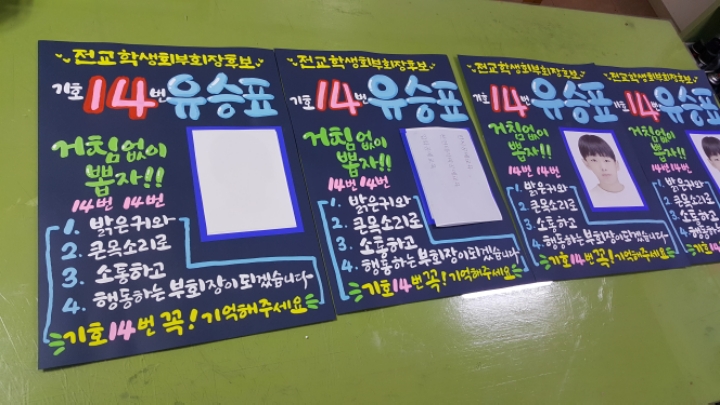 전교학생회부회장후보
기호 14번 유승표
거침없이
뽑자!!
14번 14번
1. 밝은귀와
2. 큰목소리로
3. 소통하고
4. 행동하는 부회장이되겠습니다
기호14번 꼭! 기억해주세요
전교학생회부회장후보
기호 14번 유승표
거침없이
뽑자!!
14번 14번
1. 밝은귀와
2. 큰목소리로
3. 소통하고
4. 행동하는 부회장이되겠습니다
기호14번 꼭! 기억해주세요
전교학생회부회장후보
기호 14번 유승표
거침없이
뽑자!!
14번 14번
1. 밝은귀와
2. 큰목소리로
3. 소통하고
4. 행동하는 부회장이되겠습니다
기호14번 꼭! 기억해주세요
전교학생회부회장후보
기호 14번 유승표
거침없이
뽑자!!
14번 14번
1. 밝은귀와
2. 큰목소리로
3. 소통하고
4. 행동하는 부회장이되
기호14번 꼭! 기억